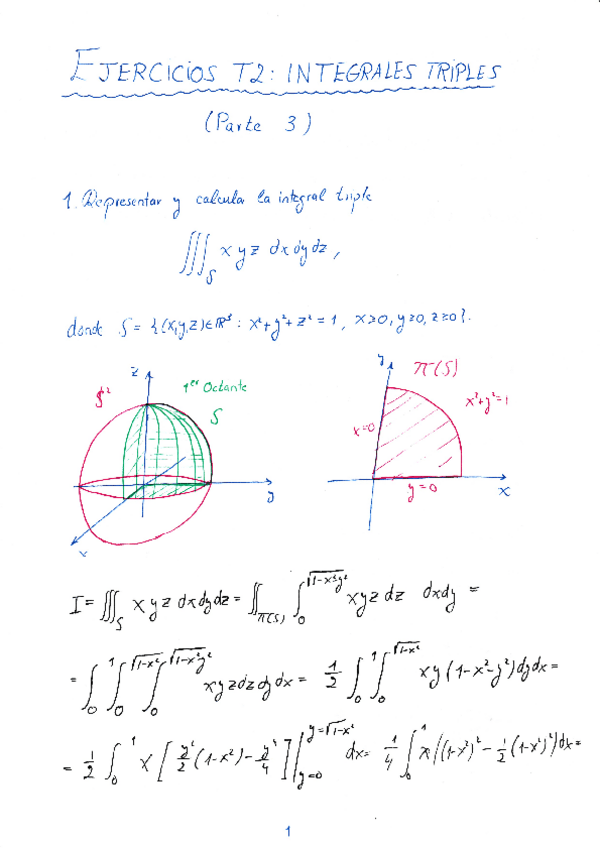 EJERCICIOS T2: INTEGRALES TRIPLES
(Parte 3)
1. Representar y calcular la integral triple
∭_S x y z dx dy dz ,
donde S = {(x,y,z)∈ℝ³ : x²+y²+z² = 1, x≥0, y≥0, z≥0}.
z
S²
1er Octante
S
y
x
y
π(S)
x²+y²=1
x=0
y=0
x
I = ∭_S x y z dx dy dz = ∬_π(S) ∫_0^√(1-x²-y²) xyz dz dxdy =
= ∫_0^1 ∫_0^√(1-x²) ∫_0^√(1-x²-y²) xyz dz dy dx = 1/2 ∫_0^1 ∫_0^√(1-x²) xy (1-x²-y²) dy dx =
= 1/2 ∫_0^1 x [y²/2 (1-x²) - y⁴/4] |_y=0^y=√(1-x²) dx = 1/4 ∫_0^1 x ((1-x²)² - 1/2 (1-x²)²) dx =
1